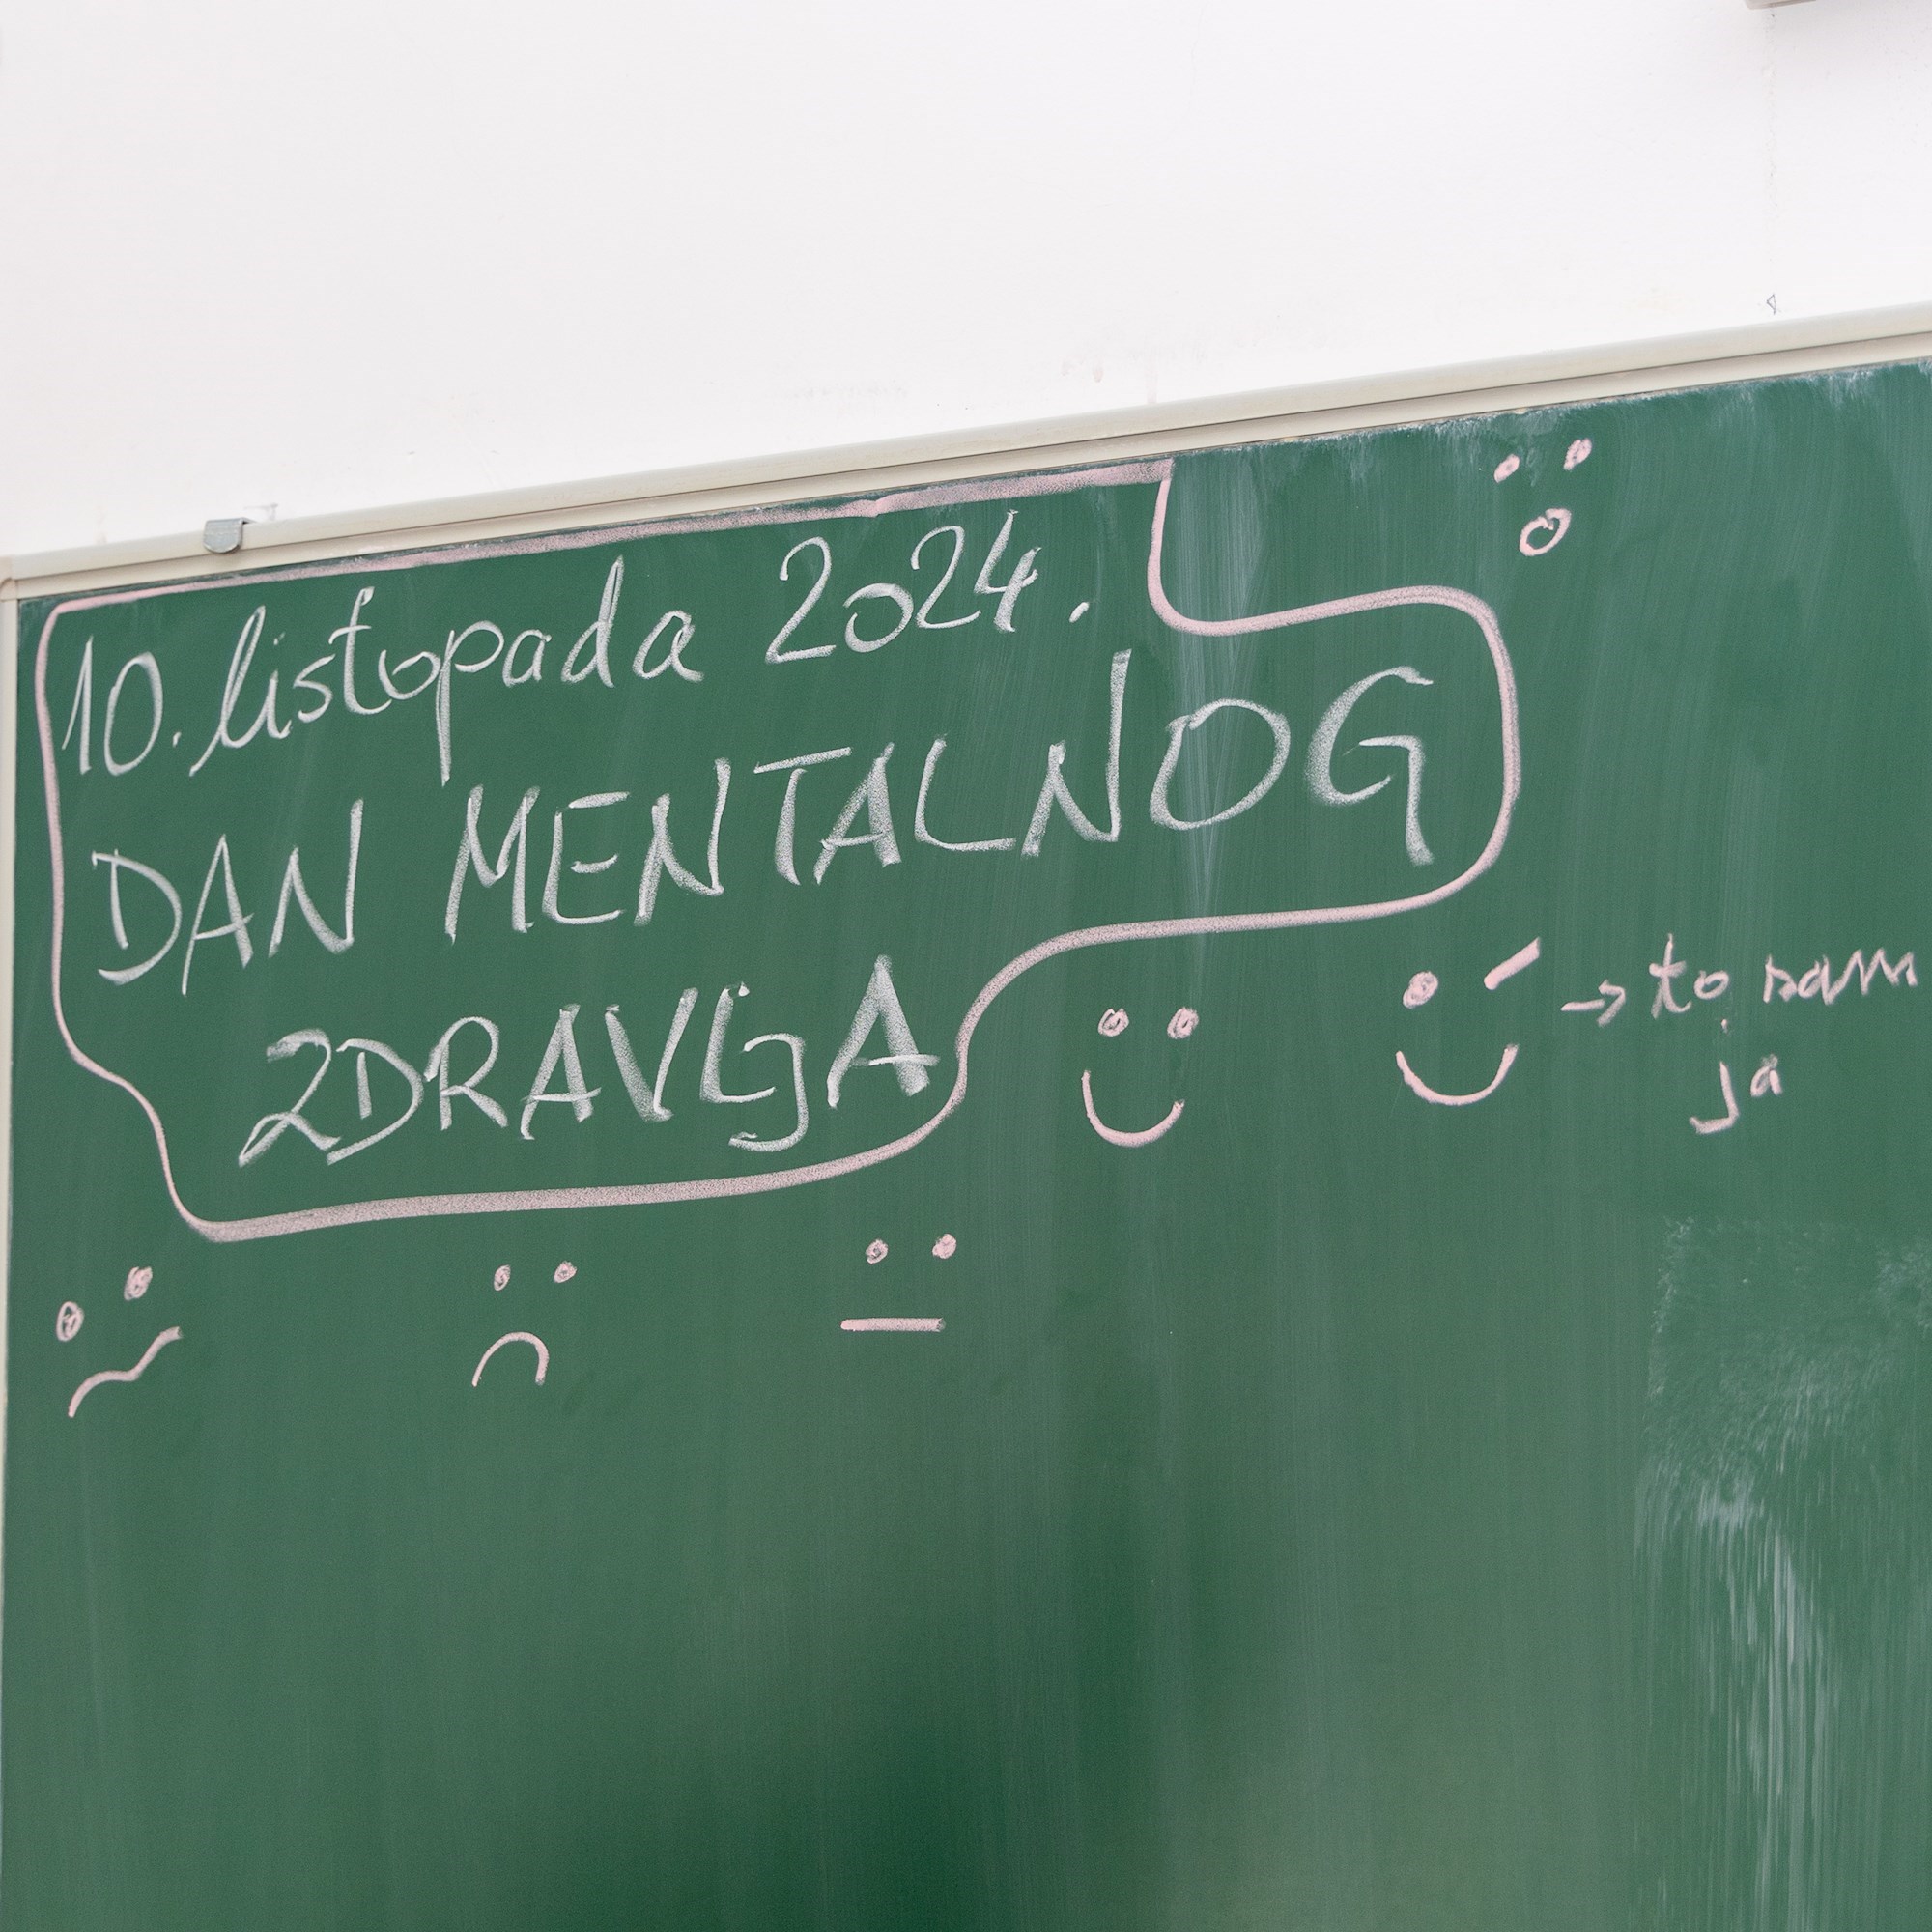 10. listopada 2024.
DAN MENTALNOG
ZDRAVLJA
→ to sam
ja